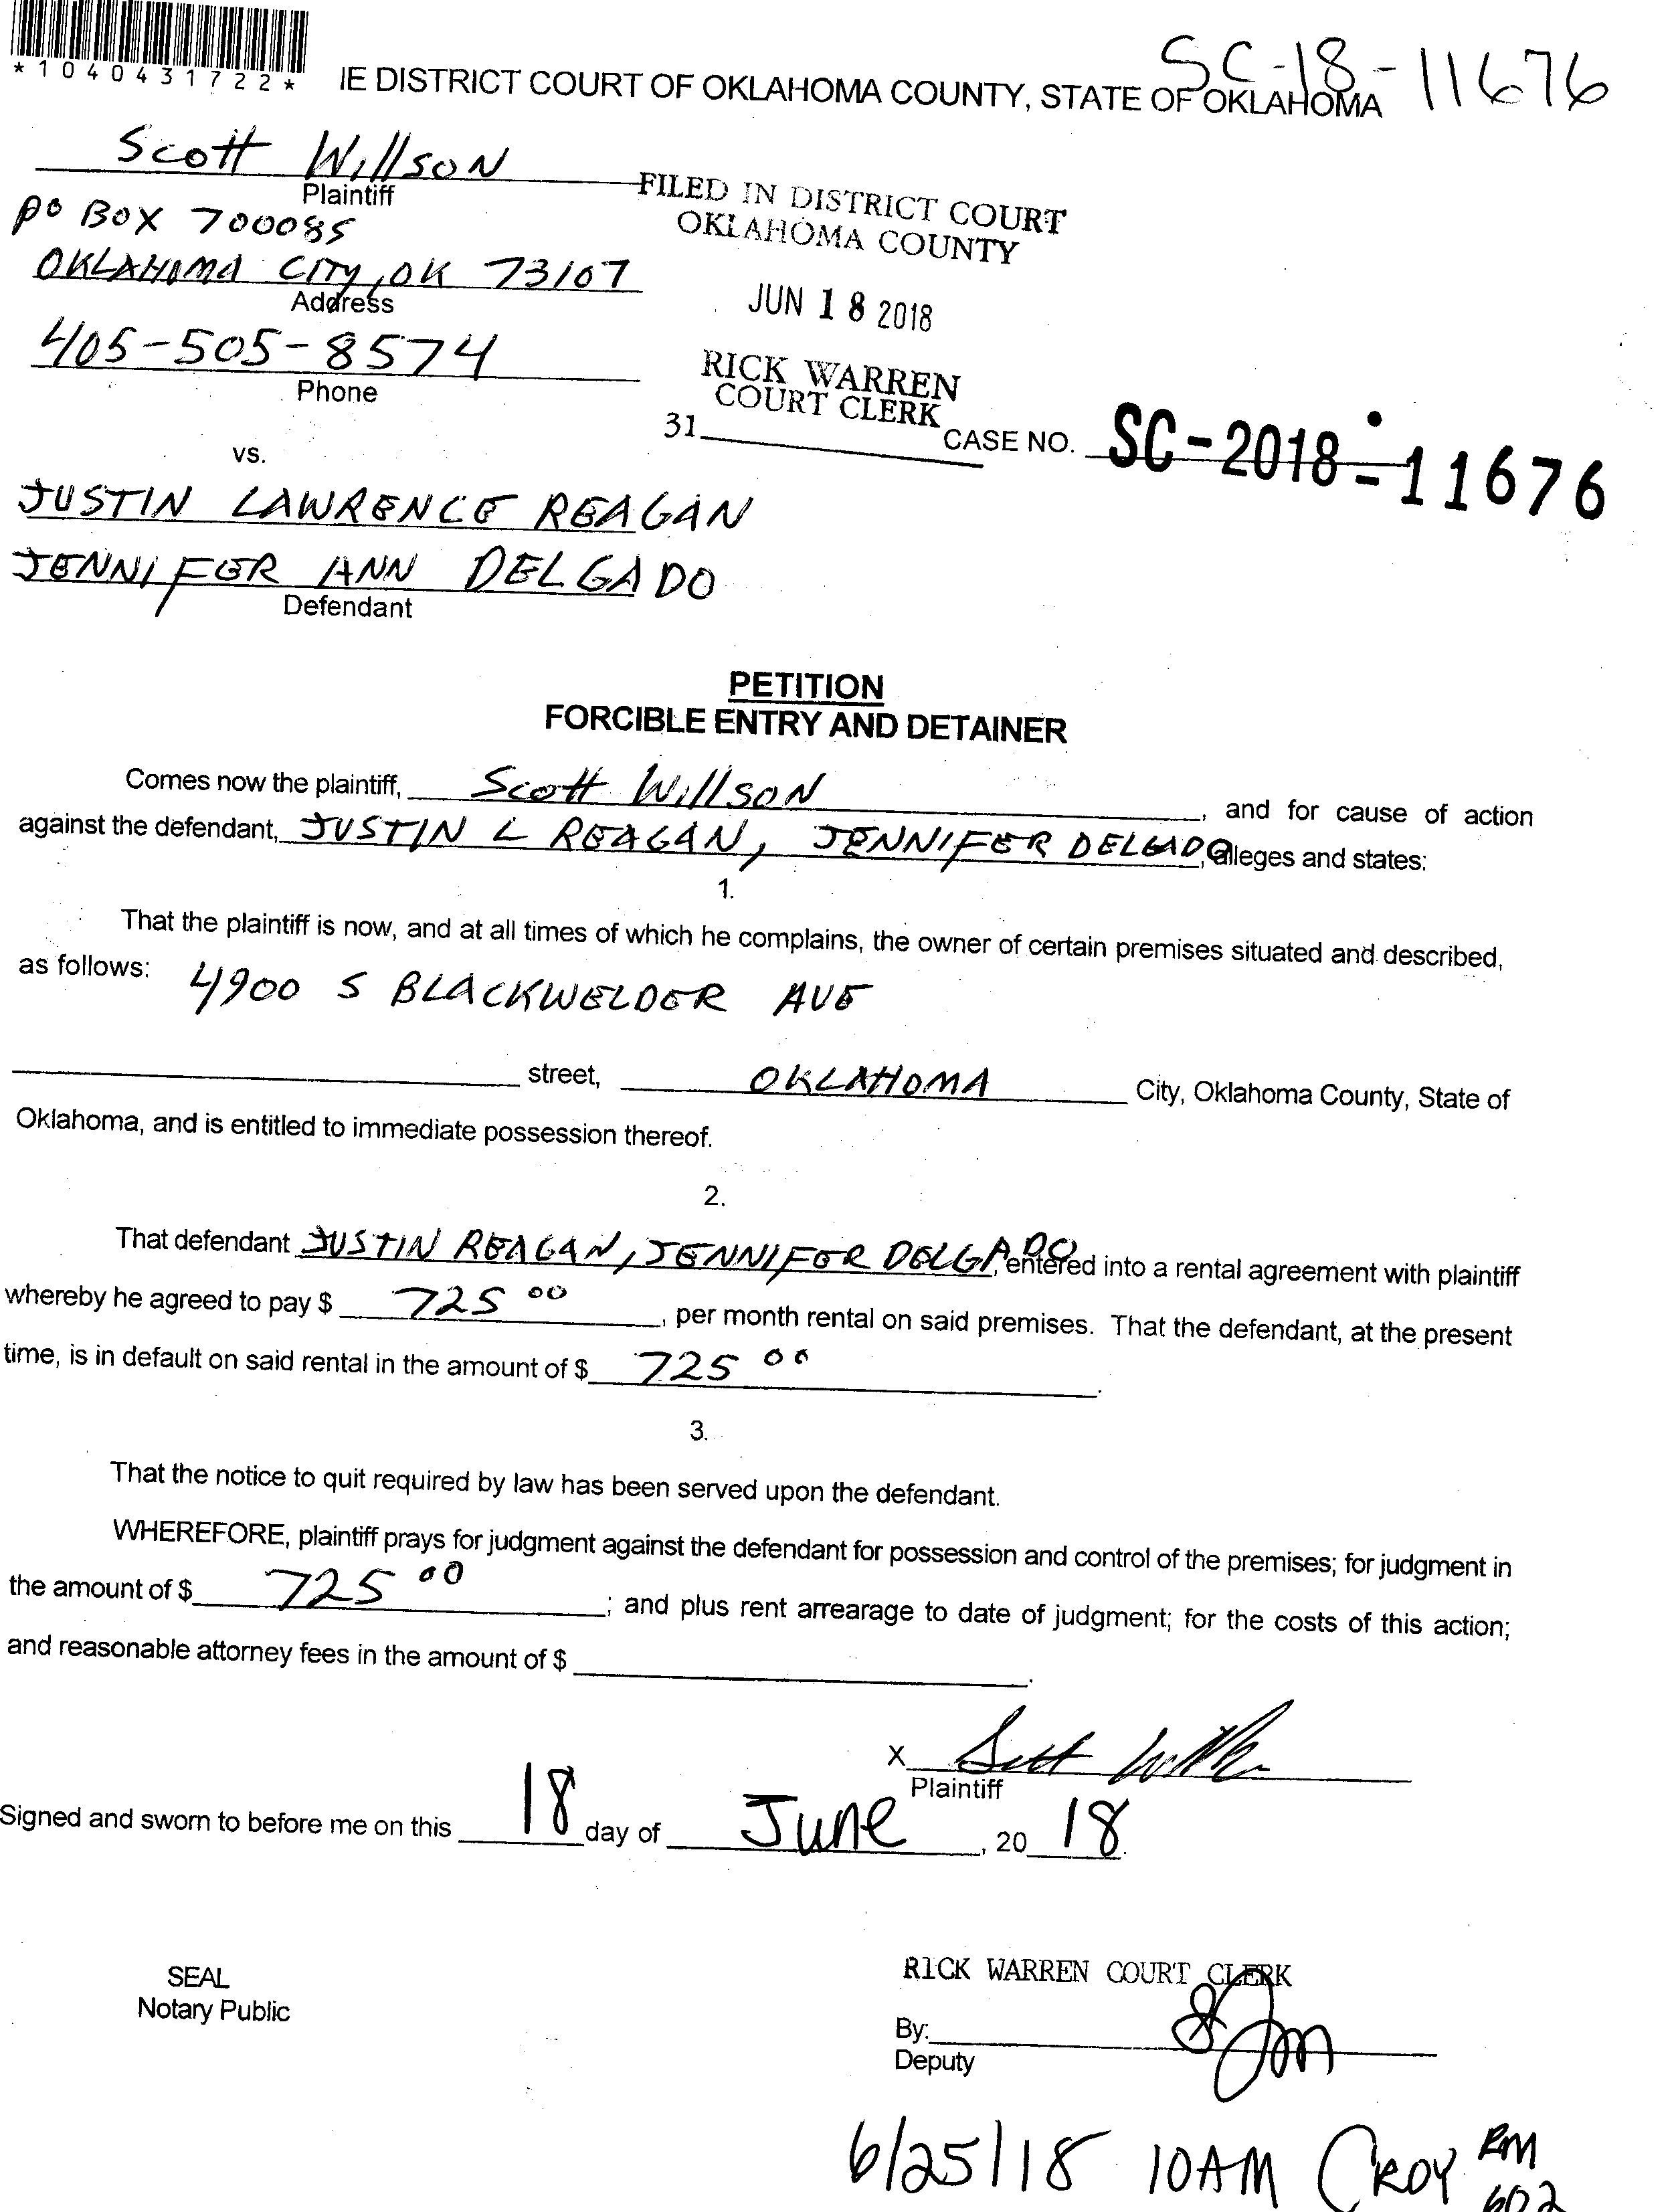 SC-18-11676
*1040431722*
IE DISTRICT COURT OF OKLAHOMA COUNTY, STATE OF OKLAHOMA
Scott Willson
Plaintiff
PO BOX 700085
OKLAHOMA CITY, OK 73107
Address
405-505-8574
Phone
FILED IN DISTRICT COURT
OKLAHOMA COUNTY
JUN 18 2018
RICK WARREN
COURT CLERK
31
CASE NO. SC-2018-11676
vs.
JUSTIN LAWRENCE REAGAN
JENNIFER ANN DELGADO
Defendant
PETITION
FORCIBLE ENTRY AND DETAINER
Comes now the plaintiff, Scott Willson, and for cause of action
against the defendant, JUSTIN L REAGAN, JENNIFER DELGADO, alleges and states:
1.
That the plaintiff is now, and at all times of which he complains, the owner of certain premises situated and described,
as follows: 4900 S BLACKWELDER AVE
street, OKLAHOMA City, Oklahoma County, State of
Oklahoma, and is entitled to immediate possession thereof.
2.
That defendant JUSTIN REAGAN, JENNIFER DELGADO, entered into a rental agreement with plaintiff
whereby he agreed to pay $ 725 00, per month rental on said premises. That the defendant, at the present
time, is in default on said rental in the amount of $ 725 00.
3.
That the notice to quit required by law has been served upon the defendant.
WHEREFORE, plaintiff prays for judgment against the defendant for possession and control of the premises; for judgment in
the amount of $ 725 00; and plus rent arrearage to date of judgment; for the costs of this action;
and reasonable attorney fees in the amount of $ .
X Scott Willson
Plaintiff
Signed and sworn to before me on this 18 day of June, 20 18.
SEAL
Notary Public
RICK WARREN COURT CLERK
By:
Deputy
6/25/18 10AM CROY RM
602